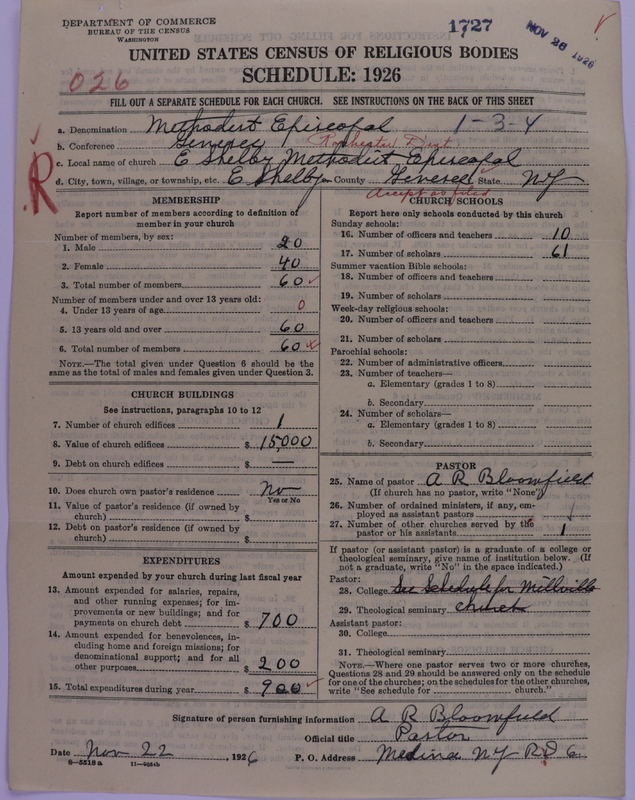 DEPARTMENT OF COMMERCE
BUREAU OF THE CENSUS
WASHINGTON
1727
NOV 26 1926
UNITED STATES CENSUS OF RELIGIOUS BODIES
SCHEDULE: 1926
026
FILL OUT A SEPARATE SCHEDULE FOR EACH CHURCH. SEE INSTRUCTIONS ON THE BACK OF THIS SHEET
a. Denomination Methodist Episcopal 1-3-4
b. Conference Genesee Rochester Dist
c. Local name of church E Shelby Methodist Episcopal
d. City, town, village, or township, etc. E Shelby County Genesee State NY
R
Accept as filed
MEMBERSHIP
Report number of members according to definition of member in your church
Number of members, by sex:
1. Male 20
2. Female 40
3. Total number of members 60
Number of members under and over 13 years old:
4. Under 13 years of age 0
5. 13 years old and over 60
6. Total number of members 60
NOTE.—The total given under Question 6 should be the same as the total of males and females given under Question 3.
CHURCH BUILDINGS
See instructions, paragraphs 10 to 12
7. Number of church edifices 1
8. Value of church edifices $ 15,000
9. Debt on church edifices $ —
10. Does church own pastor's residence No
Yes or No
11. Value of pastor's residence (if owned by church) $
12. Debt on pastor's residence (if owned by church) $
EXPENDITURES
Amount expended by your church during last fiscal year
13. Amount expended for salaries, repairs, and other running expenses; for improvements or new buildings; and for payments on church debt $ 700
14. Amount expended for benevolences, including home and foreign missions; for denominational support; and for all other purposes $ 200
15. Total expenditures during year $ 900
CHURCH SCHOOLS
Report here only schools conducted by this church
Sunday schools:
16. Number of officers and teachers 10
17. Number of scholars 61
Summer vacation Bible schools:
18. Number of officers and teachers
19. Number of scholars
Week-day religious schools:
20. Number of officers and teachers
21. Number of scholars
Parochial schools:
22. Number of administrative officers
23. Number of teachers—
a. Elementary (grades 1 to 8)
b. Secondary
24. Number of scholars—
a. Elementary (grades 1 to 8)
b. Secondary
PASTOR
25. Name of pastor A R Bloomfield
(If church has no pastor, write "None")
26. Number of ordained ministers, if any, employed as assistant pastors
27. Number of other churches served by the pastor or his assistants 1
If pastor (or assistant pastor) is a graduate of a college or theological seminary, give name of institution below. (If not a graduate, write "No" in the space indicated.)
Pastor:
28. College See Schedule for Millville
29. Theological seminary church
Assistant pastor:
30. College
31. Theological seminary
NOTE.—Where one pastor serves two or more churches, Questions 28 and 29 should be answered only on the schedule for one of the churches; on the schedules for the other churches, write "See schedule for church."
Signature of person furnishing information A R Bloomfield
Official title Pastor
Date Nov 22, 1926
P. O. Address Medina NY RD 6
8-5518a 11-9054b